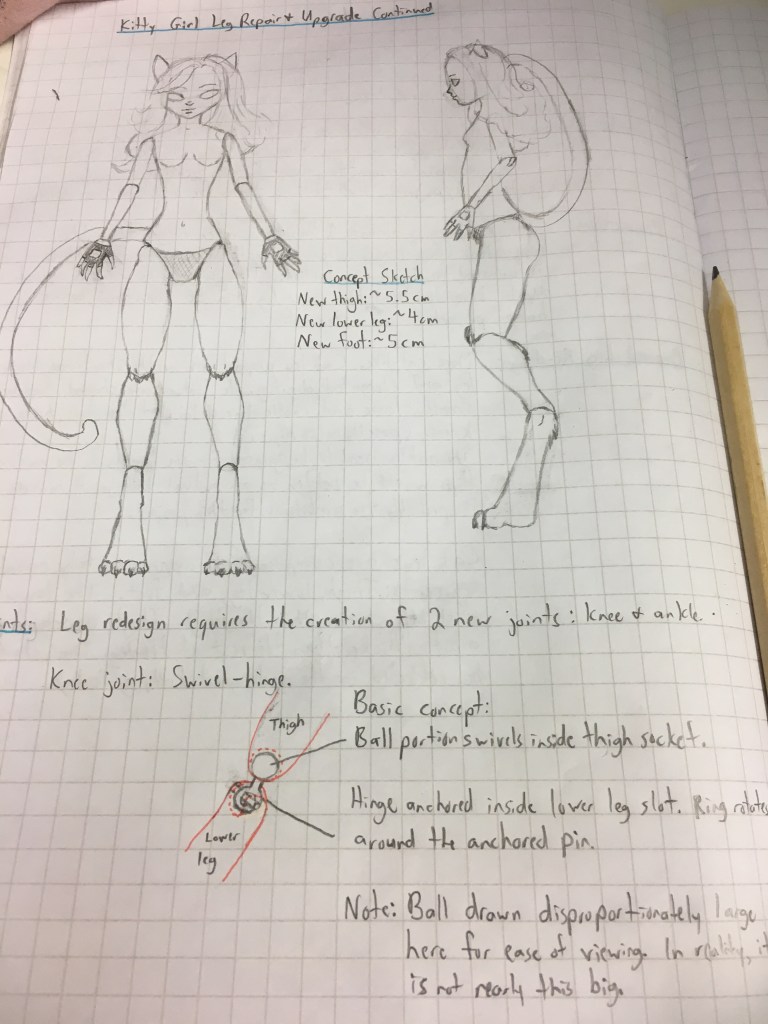 Kitty Girl Leg Repair & Upgrade Continued
Concept Sketch
New thigh: ~5.5cm
New lower leg: ~4cm
New foot: ~5cm
nts: Leg redesign requires the creation of 2 new joints: knee & ankle.
Knee joint: Swivel-hinge.
Thigh
Lower
leg
Basic concept:
Ball portion swivels inside thigh socket.
Hinge anchored inside lower leg slot. Ring rotates
around the anchored pin.
Note: Ball drawn disproportionately large
here for ease of viewing. In reality, it
is not nearly this big.